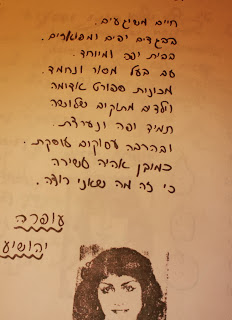 חיים משגעים.
הבגדים יפים ומפוארים.
הבית יפה ומיוחד.
עם בעל מסור ונחמד.
מכונית ספורט אדומה
וילדים מתוקים שלושה
תמיד יפה ונערצת
ובהרבה עסקים עוסקת.
כמובן אהיה עשירה
כי זה מה שאני רוצה.
עופרה
יהושיע